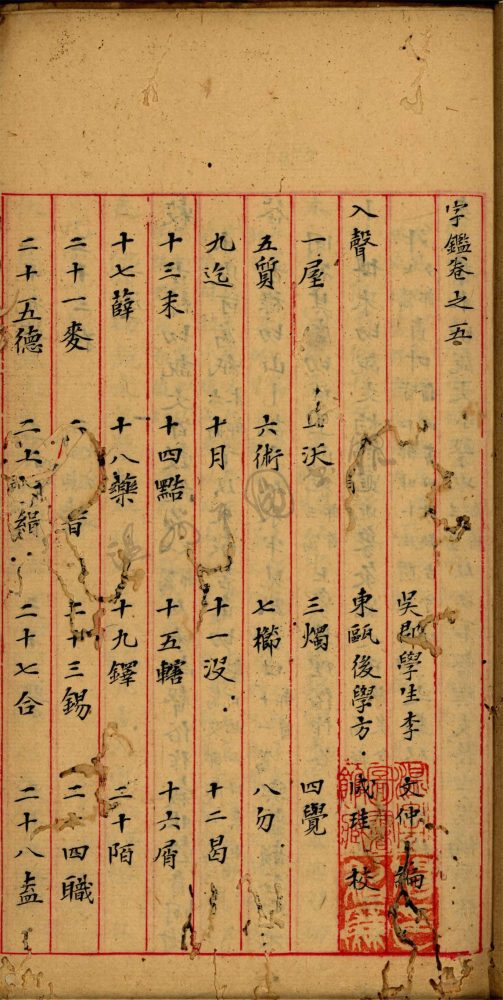 字鑑卷之五
吳郡學生李 文仲 編
東甌後學方 成珪 校
入聲
一屋 二沃 三燭 四覺
五質 六術 七櫛 八勿
九迄 十月 十一沒 十二曷
十三末 十四黠 十五轄 十六屑
十七薛 十八藥 十九鐸 二十陌
二十一麥 二 昔 二十三錫 二十四職
二十五德 二十 緝 二十七合 二十八盍